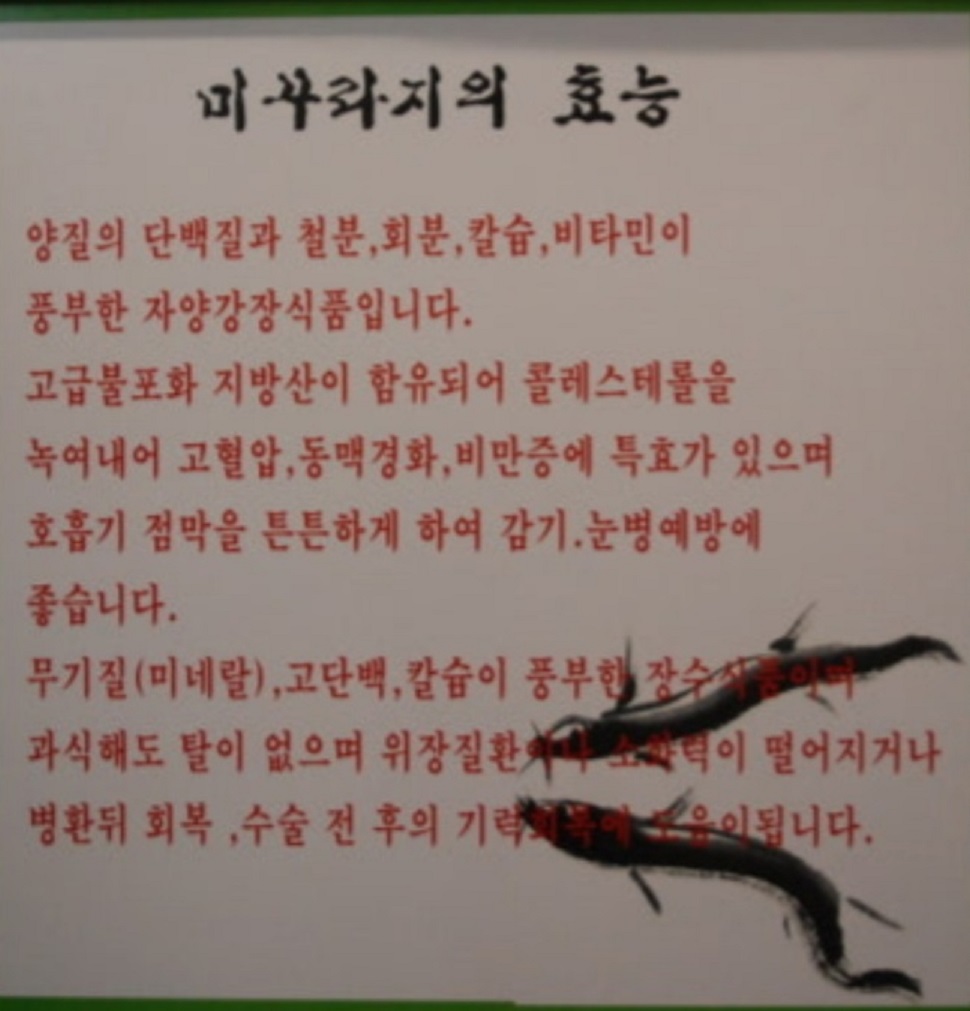 미꾸라지의 효능
양질의 단백질과 철분,회분,칼슘,비타민이
풍부한 자양강장식품입니다.
고급불포화 지방산이 함유되어 콜레스테롤을
녹여내어 고혈압,동맥경화,비만증에 특효가 있으며
호흡기 점막을 튼튼하게 하여 감기.눈병예방에
좋습니다.
무기질(미네랄),고단백,칼슘이 풍부한 장수식품이며
과식해도 탈이 없으며 위장질환이나 소화력이 떨어지거나
병환뒤 회복 ,수술 전 후의 기력회복에 도움이됩니다.